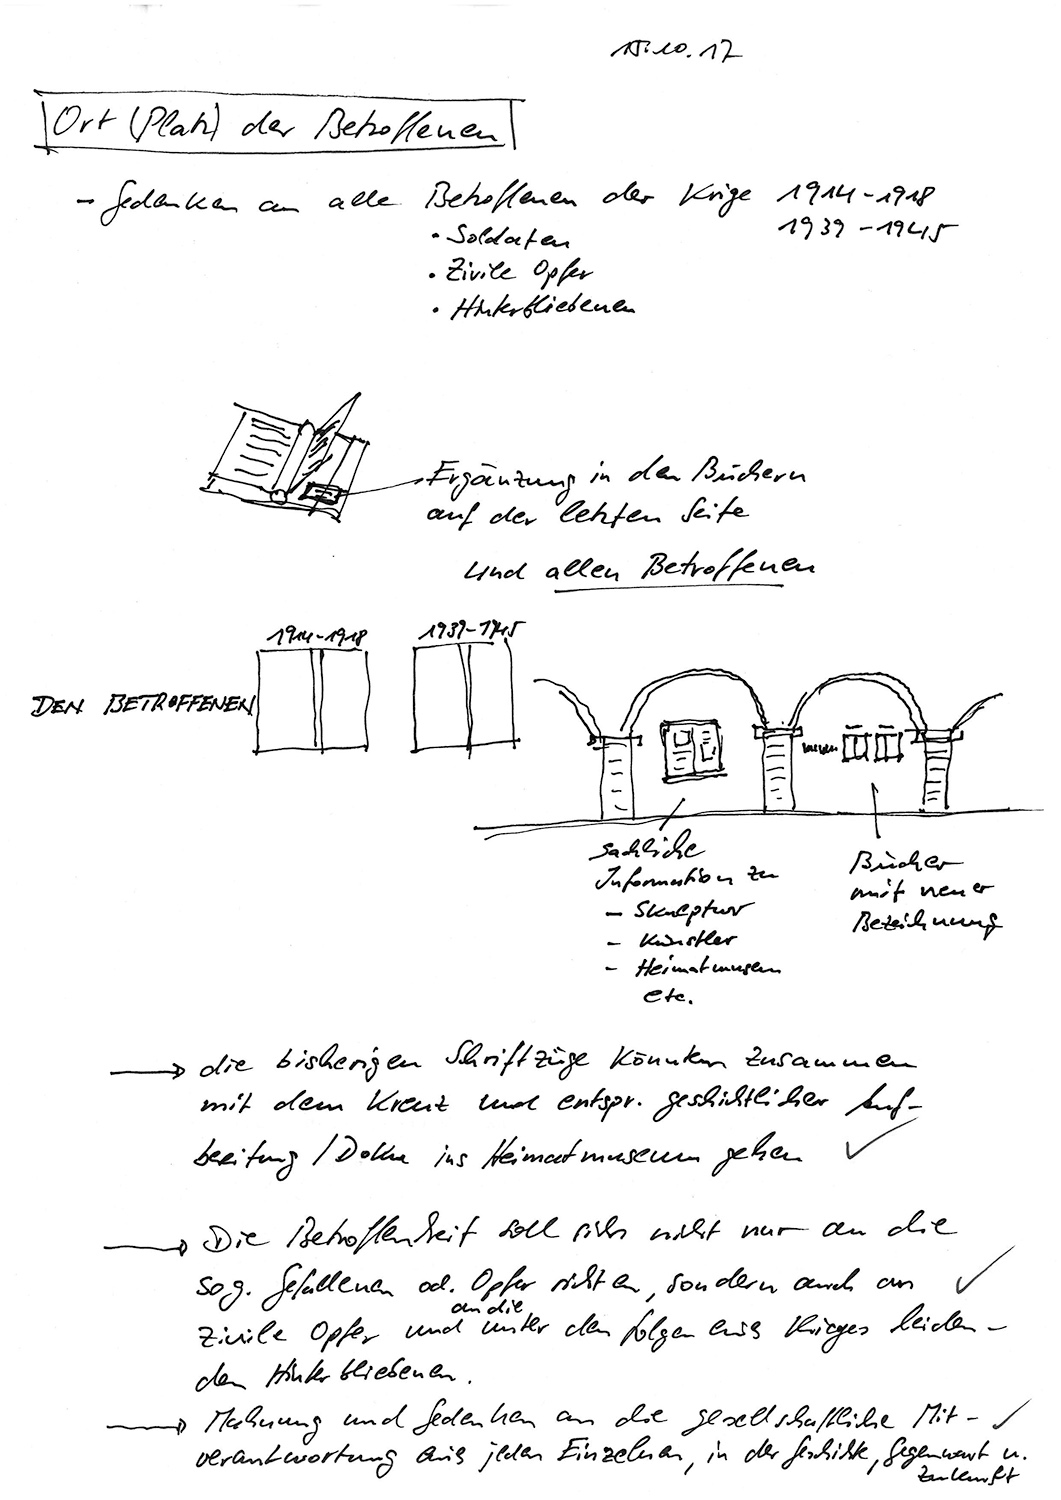 15.10.17
Ort (Platz) der Betroffenen
- Gedenken an alle Betroffenen der Krige 1914-1918
1939-1945
• Soldaten
• Zivile Opfer
• Hinterbliebenen
Ergänzung in den Büchern
auf der letzten Seite
und allen Betroffenen
1914-1918 1939-1945
DEN BETROFFENEN
sachliche
Information zu
- Skulptur
- Künstler
- Heimatmuseum
etc.
Bücher
mit neuer
Bezeichnung
→ die bisherigen Schriftzüge könnten zusammen
mit dem Kreuz und entspr. geschichtlicher Auf-
bereitung / Doku ins Heimatmuseum gehen ✓
→ Die Betroffenheit soll sich nicht nur an die
sog. Gefallenen od. Opfer richten, sondern auch an ✓
an die
zivile Opfer und unter den Folgen eines Krieges leiden-
den Hinterbliebenen.
→ Mahnung und Gedenken an die gesellschaftliche Mit- ✓
verantwortung eines jeden Einzelnen, in der Geschichte, Gegenwart u.
Zukunft